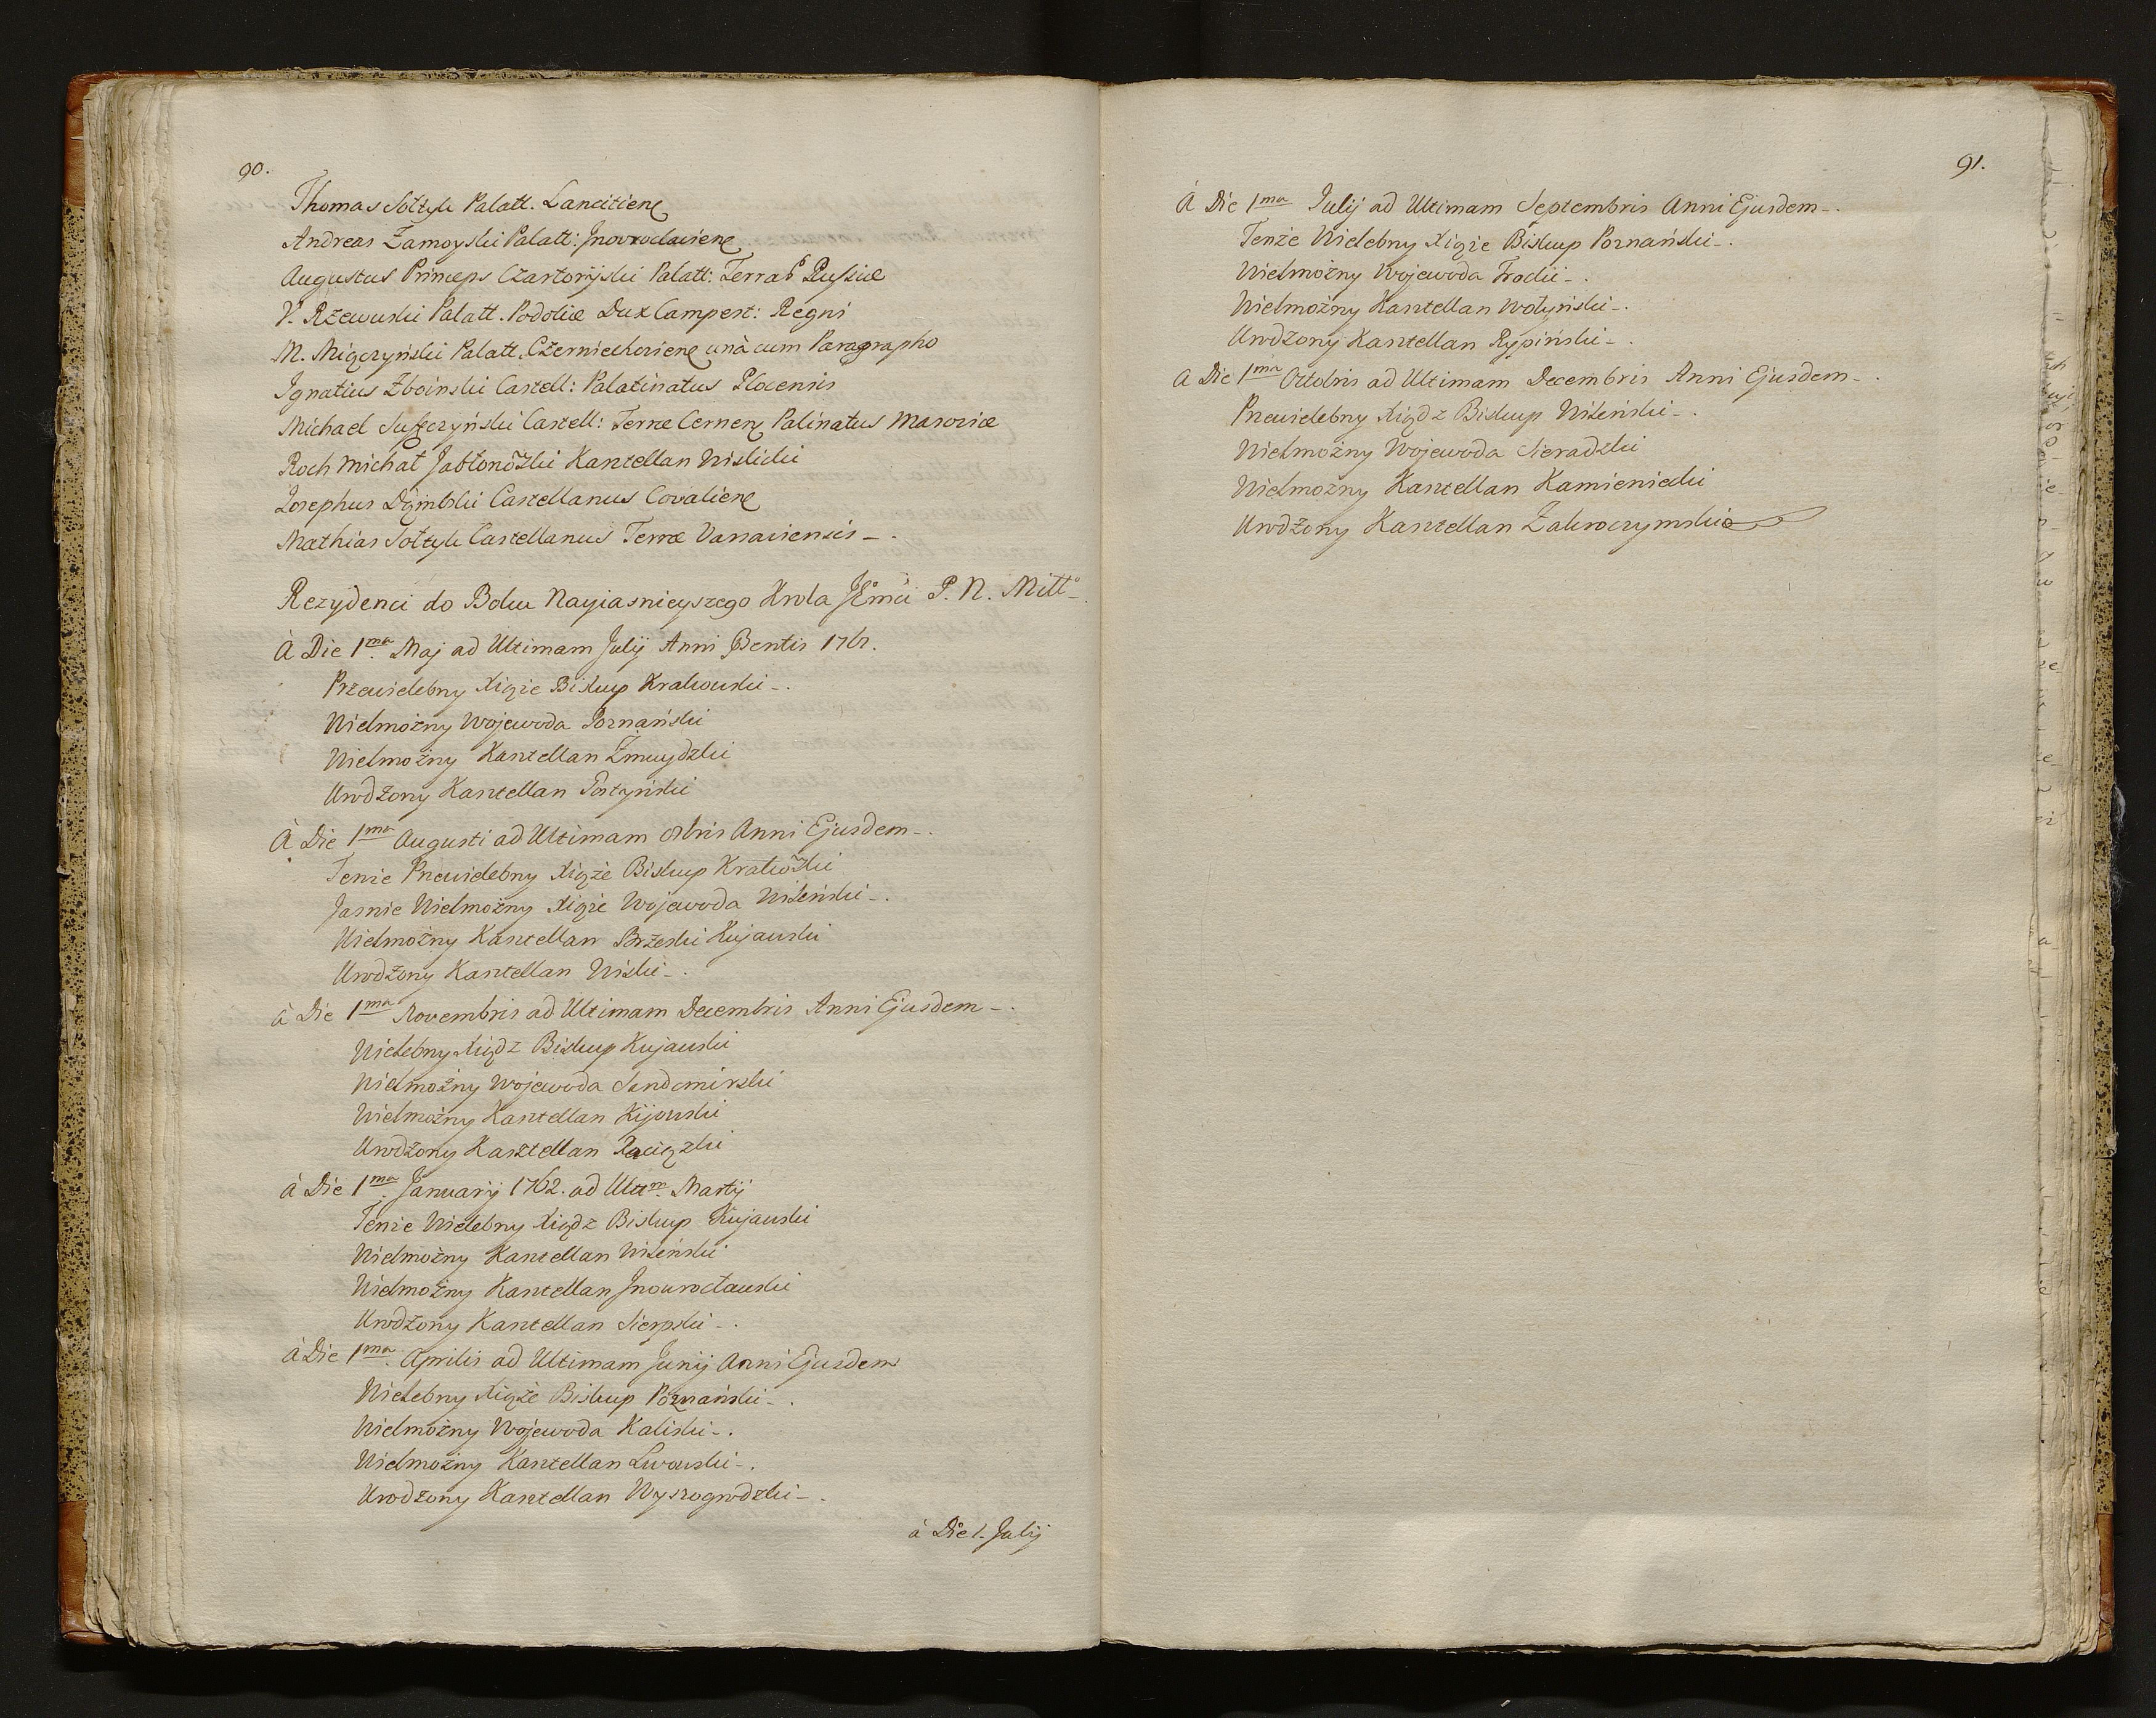 90.
Thomas Sołtyk Palatt. Lancitiens
Andreas Zamoyski Palatt: Inovrocłaviens
Augustus Princeps Czartoryski Palatt: Terrar̃ Russiæ
V. Rzewuski Palatt. Podoliæ Dux Campest: Regni
M. Miączyński Palatt. Czerniechoviens unà cum Paragrapho
Ignatius Zboinski Castell: Palatinatus Plocensis
Michael Suffczyński Castell: Terræ Cernens Palinatus Masoviæ
Roch Michał Jabłonõski Kasztellan Wislicki
Josephus Dąmbski Castellanus Covaliens
Mathias Sołtyk Castellanus Terræ Varsaviensis -.
Rezydenci do Boku Nayiasnieyszego Krola JEmci P. N. Miłł°-
à Die 1ma Maj ad Ultimam Julij Anni Pñentis 1761.
Przewielebny Xiąże Biskup Krakowski -.
Wielmożny Wojewoda Poznański
Wielmożny Kasztellan Żmuydzki
Urodzony Kasztellan Połtyński
à Die 1ma Augusti ad Ultimam 8bris Anni Ejusdem -.
Tenże Przewielebny Xiąże Biskup Krakõski
Jasnie Wielmożny Xiąże Wojewoda Wileński -.
Wielmożny Kasztellan Brzeski Kujawski
Urodzony Kasztellan Wiski -.
à Die 1ma Novembris ad Ultimam Decembris Anni Ejusdem -.
Wielebny Xiądz Biskup Kujawski
Wielmożny Wojewoda Sendomirski
Wielmożny Kasztellan Kijowski
Urodzony Kasztellan Raciązki
à Die 1ma Januarij 1762. ad Ultm. Martij
Tenże Wielebny Xiądz Biskup Kujawski
Wielmożny Kasztellan Wileński
Wielmożny Kasztellan Jnowrocławski
Urodzony Kasztellan Sierpski -.
à Die 1ma Aprilis ad Ultimam Junij Anni Ejusdem
Wielebny Xiąże Biskup Poznański -.
Wielmożny Wojewoda Kaliski -.
Wielmożny Kasztellan Lwowski -.
Urodzony Kasztellan Wyszogrodzki -.
à Die 1. Julij
91.
à Die 1ma Julij ad Ultimam Septembris Anni Ejusdem -.
Tenże Wielebny Xiąże Biskup Poznański -.
Wielmożny Wojewoda Trocki -.
Wielmożny Kasztellan Wołyński -.
Urodzony Kasztellan Rypiński -.
à Die 1ma Octobris ad Ultimam Decembris Anni Ejusdem -.
Przewielebny Xiądz Biskup Wileński -.
Wielmożny Wojewoda Sieradzki
Wielmożny Kasztellan Kamieniecki
Urodzony Kasztellan Zakroczymski